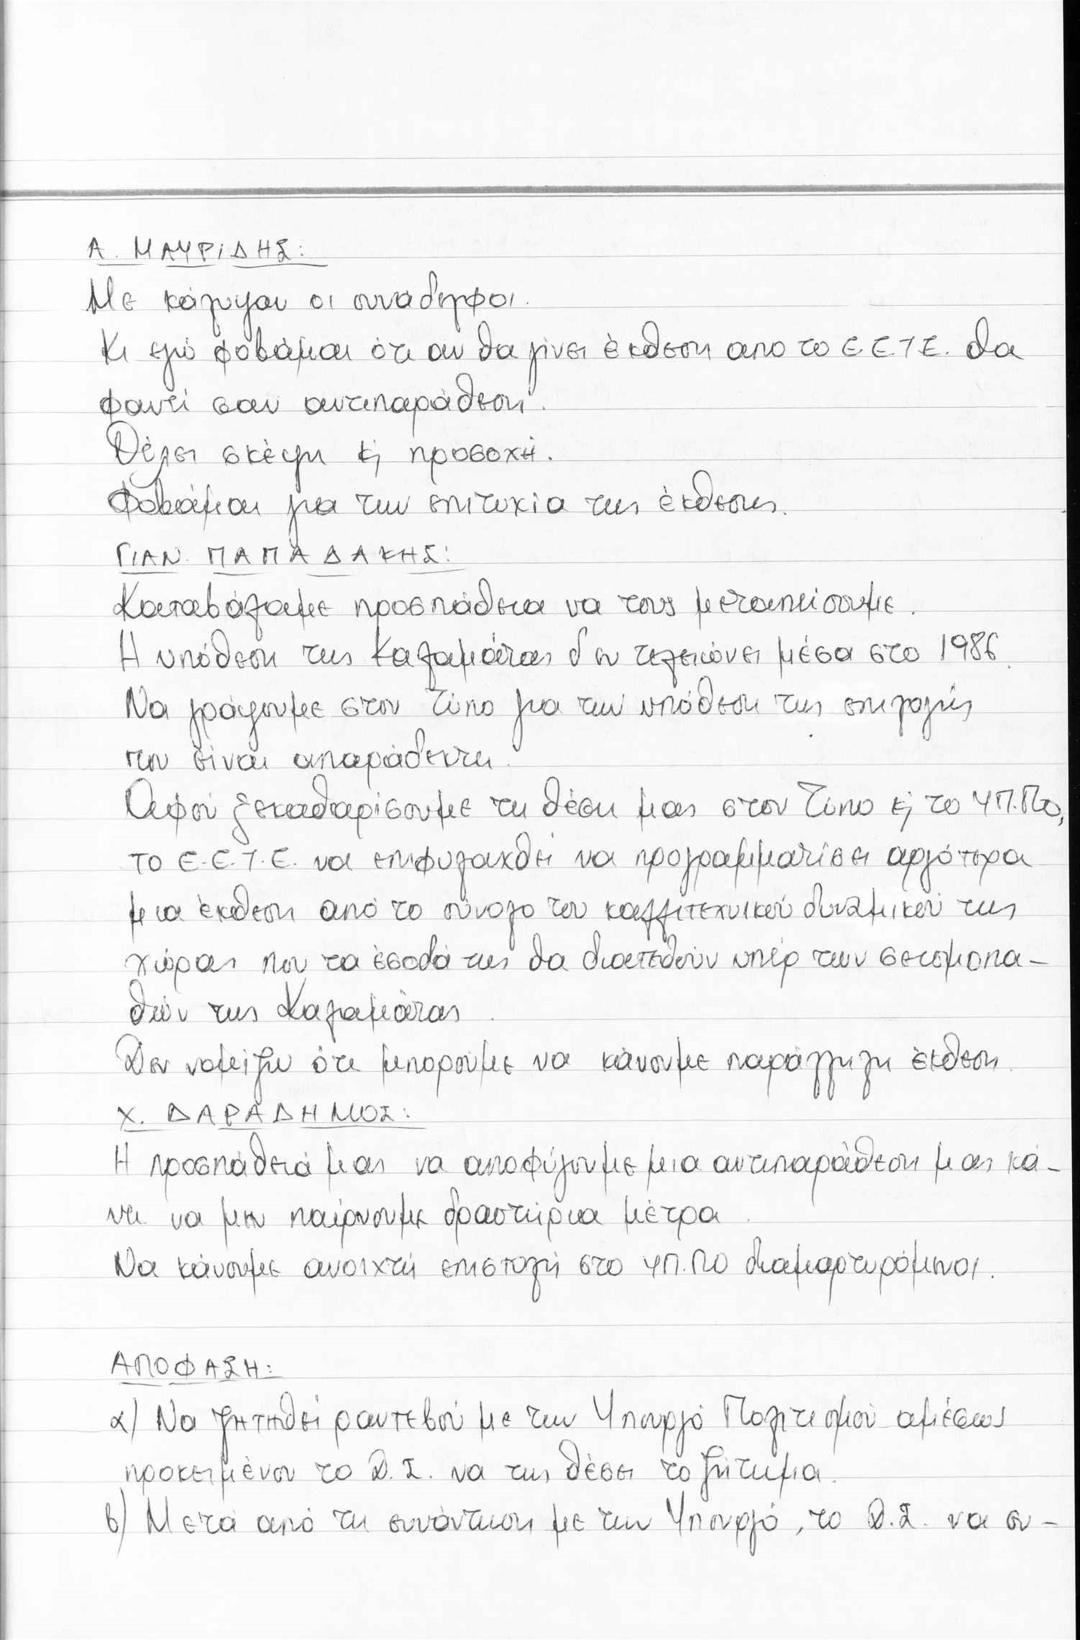 Α. ΜΑΥΡΙΔΗΣ:
Με κάλυψαν οι συνάδελφοι.
Κι εγώ φοβάμαι ότι αν θα γίνει έκθεση απο το Ε.Ε.Τ.Ε. θα
φανεί σαν αντιπαράθεση.
Θέλει σκέψη κ προσοχή.
Φοβάμαι για την επιτυχία της έκθεσης.
ΓΙΑΝ. ΠΑΠΑΔΑΚΗΣ:
Καταβάλαμε προσπάθεια να τους μεταπείσουμε.
Η υπόθεση της Καλαμάτας δεν τελειώνει μέσα στο 1986.
Να γράψουμε στον Τύπο για την υπόθεση της επιλογής
που είναι απαράδεκτη.
Αφού ξεκαθαρίσουμε τη θέση μας στον Τύπο κ το ΥΠ.ΠΟ,
το Ε.Ε.Τ.Ε. να επιφυλαχθεί να προγραμματίσει αργότερα
μια έκθεση από το σύνολο του καλλιτεχνικού δυναμικού της
χώρας που τα έσοδά της θα διατεθούν υπέρ των σεισμοπα-
θών της Καλαμάτας.
Δεν νομίζω ότι μπορούμε να κάνουμε παράλληλη έκθεση.
Χ. ΔΑΡΑΔΗΜΟΣ:
Η προσπάθειά μας να αποφύγουμε μια αντιπαράθεση μας κά-
νει να μην παίρνουμε δραστήρια μέτρα.
Να κάνουμε ανοιχτή επιστολή στο ΥΠ.ΠΟ διαμαρτυρόμενοι.
ΑΠΟΦΑΣΗ:
α) Να ζητηθεί ραντεβού με την Υπουργό Πολιτισμού αμέσως
προκειμένου το Δ.Σ. να της θέσει το ζήτημα.
β) Μετά από τη συνάντηση με την Υπουργό, το Δ.Σ. να συ-